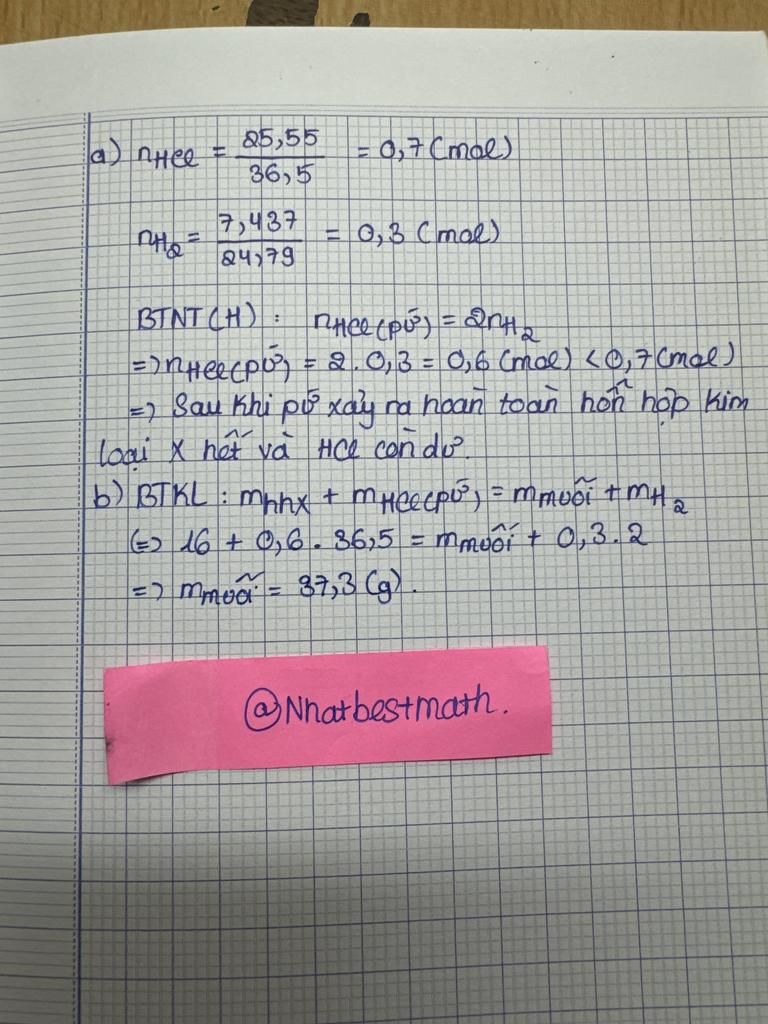 a) nHCl = 25,55 / 36,5 = 0,7 (mol)
nH₂ = 7,437 / 24,79 = 0,3 (mol)
BTNT (H) : nHCl(pứ) = 2nH₂
=> nHCl(pứ) = 2 . 0,3 = 0,6 (mol) < 0,7 (mol)
=> Sau khi pứ xảy ra hoàn toàn hỗn hợp kim
loại X hết và HCl còn dư.
b) BTKL : mhhX + mHCl(pứ) = mmuối + mH₂
(=) 16 + 0,6 . 36,5 = mmuối + 0,3 . 2
=> mmuối = 37,3 (g) .
@Nhatbestmath.